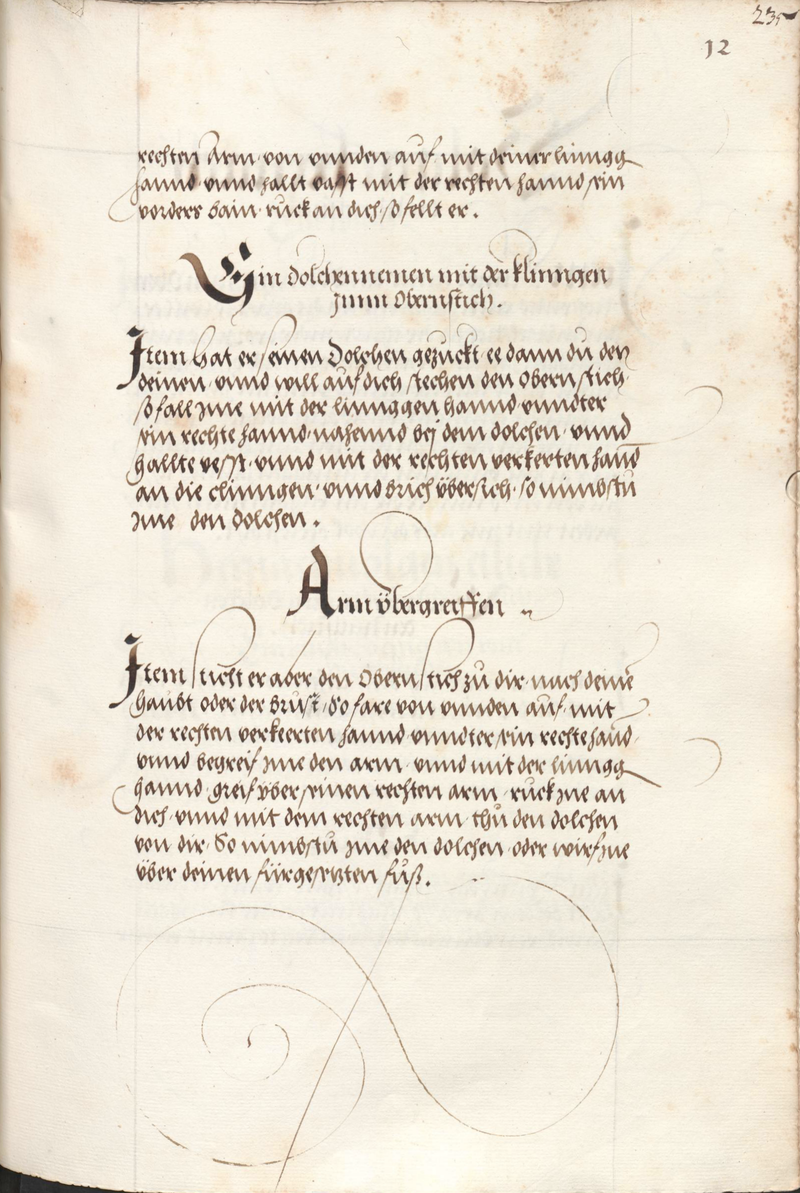 235
12
rechten Arm von vnnden auf mit deiner linngg
hannd vnnd hallt vasst mit der rechten hannd sein
vorders bain ruck an dich, so fellt er.
Ein dolchennemen mit der klinngen
zum Obernstich.
Item hat er seinen Dolchen gezuckt ee dann du den
deinen vnnd will auf dich stechen den obern stich
so fall jme mit der linnggen hannd vnndter
sein rechte hannd nahennd bej dem dolchen vnnd
hallte vesst vnnd mit der rechten verkerten hand
an die clinngen vnnd brich übersich so nimbstu
jme den dolchen.
Arm übergreiffen
Item sticht er aber den Obern stich zu dir nach deinē
haubt oder der brust, So fare von vnnden auf mit
der rechten verkeerten hannd vnndter sein rechte hand
vnnd begreif jme den arm vnnd mit der linngg
hannd greif über seinen rechten arm ruck jne an
dich vnnd mit dem rechten arm thu den dolchen
von dir So nimbstu jme den dolchen oder wirf jne
über deinen fürgesetzten fuß.